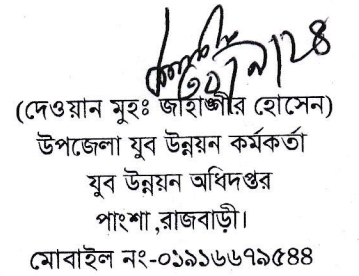 (দেওয়ান মুহঃ জাহাঙ্গীর হোসেন)
উপজেলা যুব উন্নয়ন কর্মকর্তা
যুব উন্নয়ন অধিদপ্তর
পাংশা,রাজবাড়ী।
মোবাইল নং-০১৯১৬৬৭৯৫৪৪